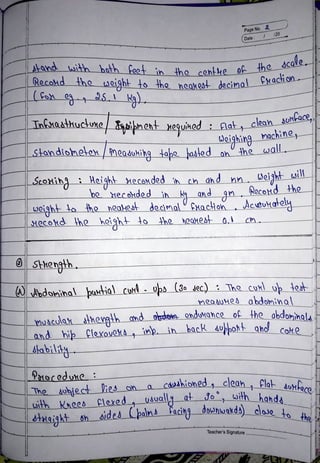 Page No. 2
Date / /20
stand with both feet in the centre of the scale.
Record the weight to the nearest decimal fraction.
(for eg, 25.1 kg).
Infrastructure / Equipment required : Flat, clean surface,
Weighing machine,
Standiometer / measuring tape pasted on the wall.
Scoring : Height recorded in cm and mm. Weight will
be recorded in kg and gm. Record the
weight to the nearest decimal fraction. Accurately
record the height to the nearest 0.1 cm.
② Strength.
(A) Abdominal partial curl-ups (30 sec) : The curl up test
measures abdominal
muscular strength and endurance of the abdominals
and hip flexovers, imp. in back support and core
stability.
Procedure :
The subject lies on a caushioned, clean, flat surface
with knees flexed, usually at 90°, with hands
straight on sides (palms facing downwards) close to the
Teacher's Signature